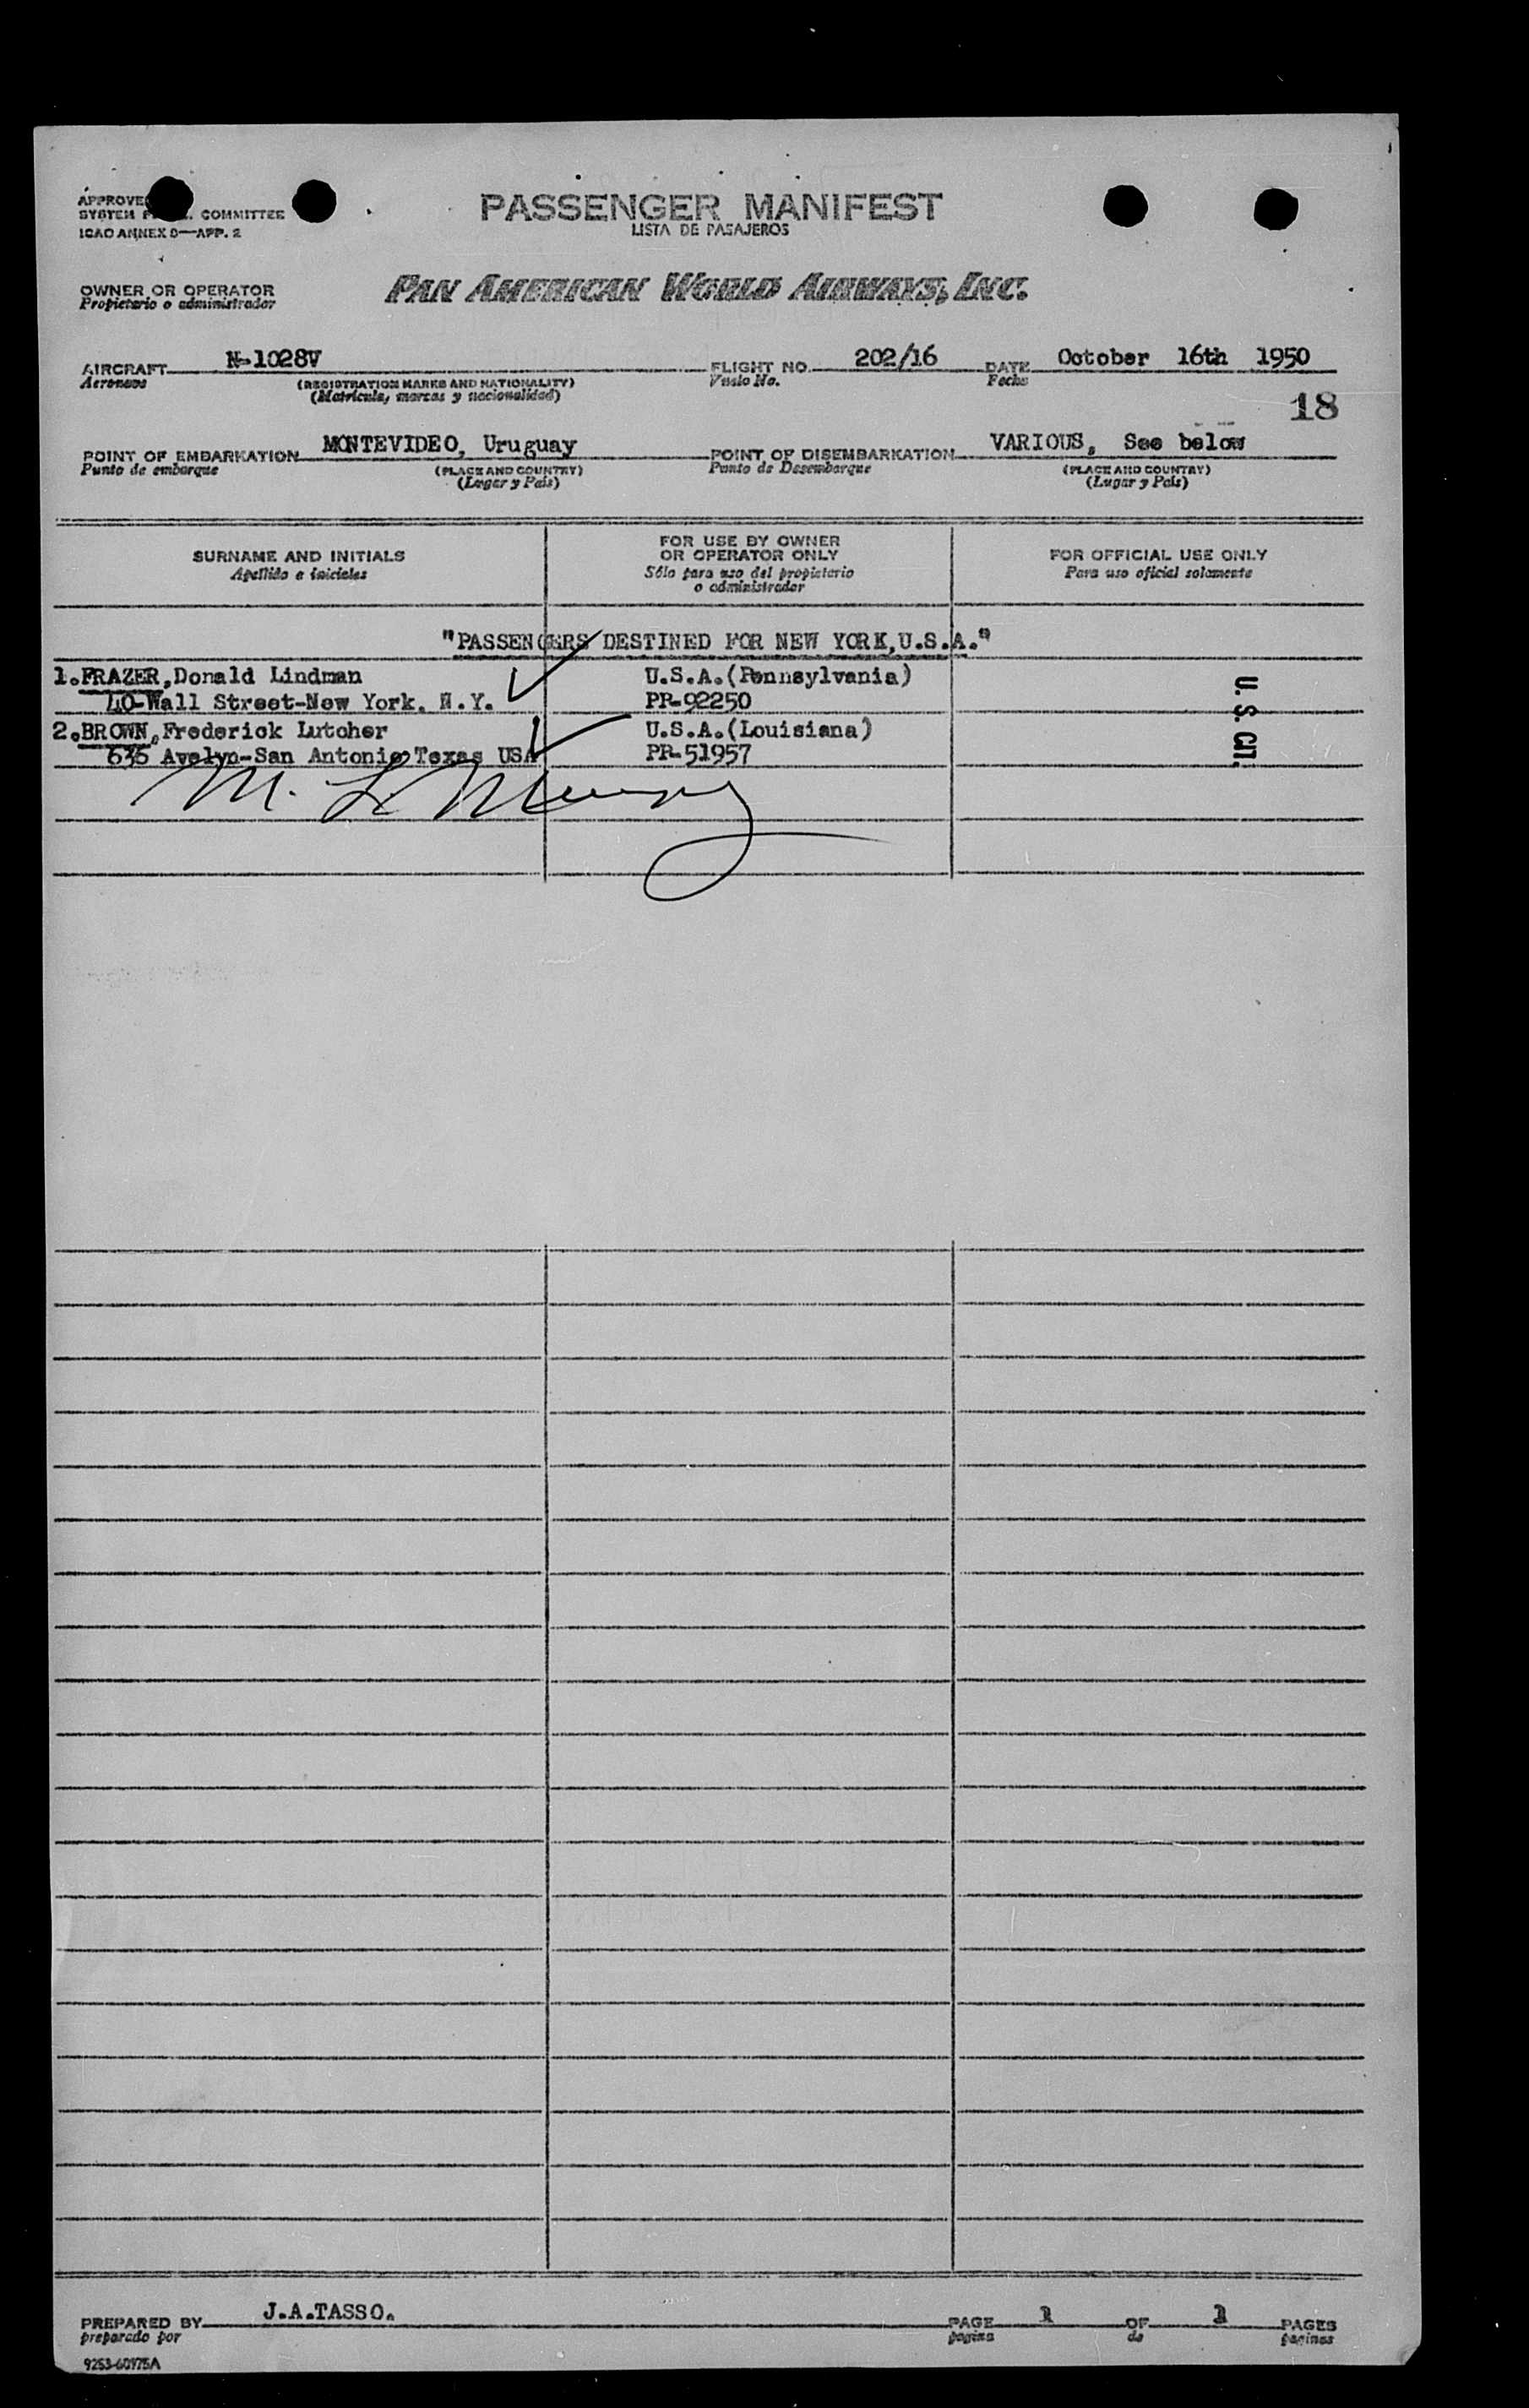 PASSENGER MANIFEST
LISTA DE PASAJEROS
APPROVED
SYSTEM COMMITTEE
ICAO ANNEX 9—APP. 2
OWNER OR OPERATOR
Propietario o administrador
PAN AMERICAN WORLD AIRWAYS, INC.
AIRCRAFT N-1028V FLIGHT NO. 202/16 DATE October 16th 1950
Aeronave (REGISTRATION MARKS AND NATIONALITY) Vuelo No. Fecha
(Matrícula, marcas y nacionalidad)
18
POINT OF EMBARKATION MONTEVIDEO, Uruguay POINT OF DISEMBARKATION VARIOUS, See below
Punto de embarque (PLACE AND COUNTRY) Punto de Desembarque (PLACE AND COUNTRY)
(Lugar y País) (Lugar y País)
SURNAME AND INITIALS
Apellido e iniciales
FOR USE BY OWNER
OR OPERATOR ONLY
Sólo para uso del propietario
o administrador
FOR OFFICIAL USE ONLY
Para uso oficial solamente
"PASSENGERS DESTINED FOR NEW YORK,U.S.A."
1.FRAZER,Donald Lindman U.S.A.(Pennsylvania)
40-Wall Street-New York. N.Y. PP-92250
2.BROWN,Frederick Lutcher U.S.A.(Louisiana)
636 Avelyn-San Antonio Texas USA PP-51957
U.S. CIT.
M. L.
PREPARED BY J.A.TASSO. PAGE 1 OF 1 PAGES
preparado por pagina de paginas
9253-60975A